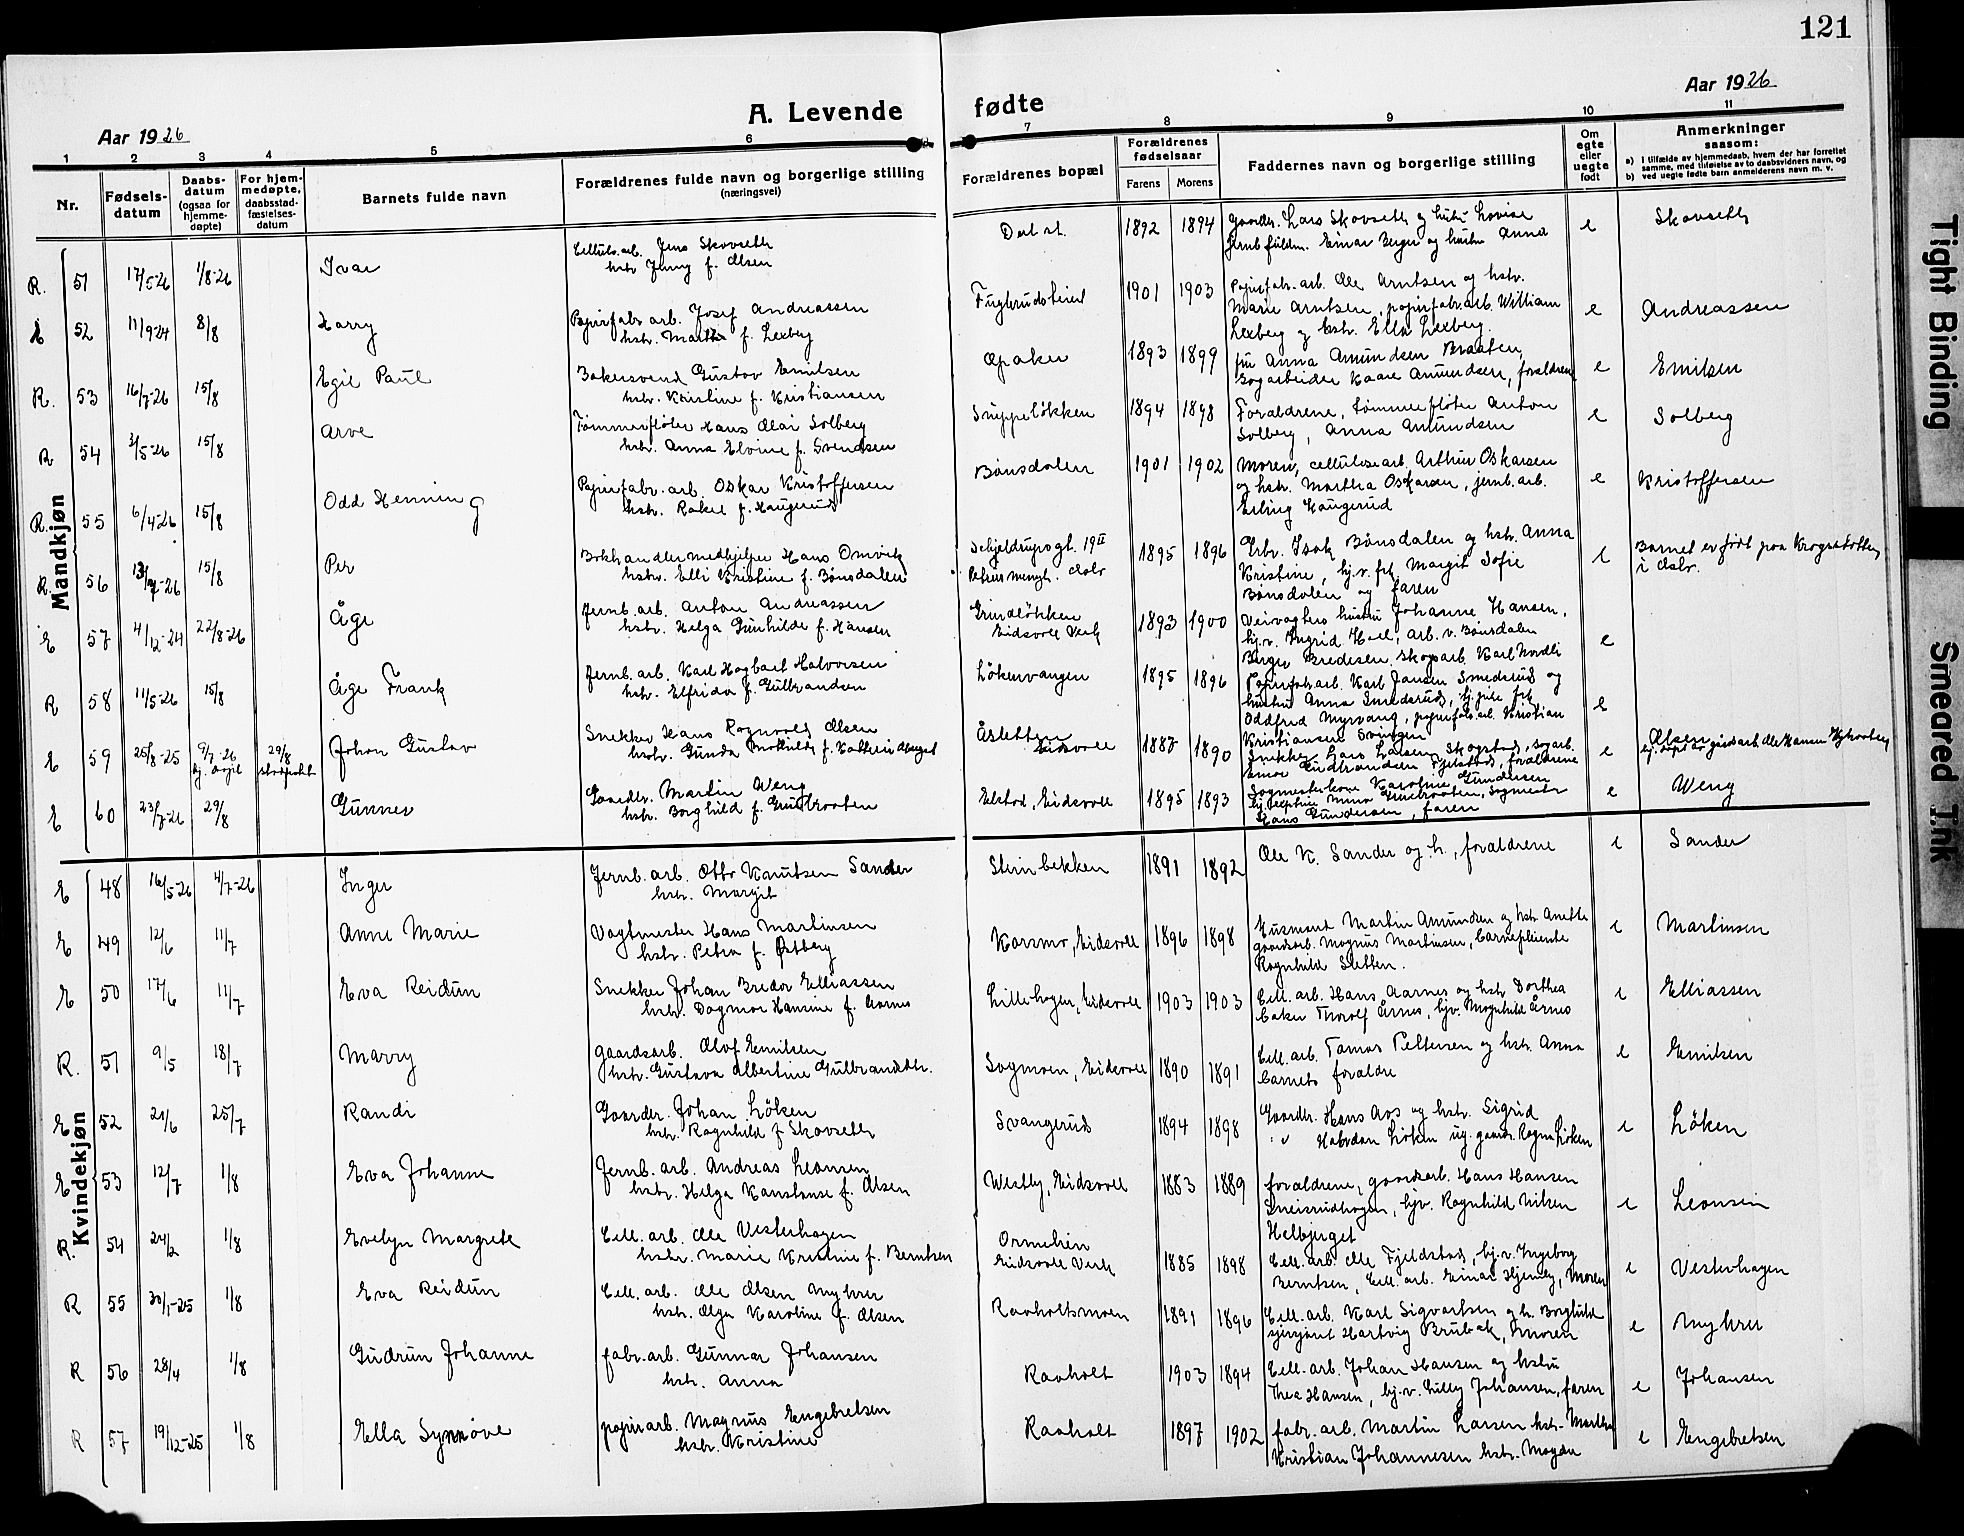 121
Aar 1926
A. Levende
fødte
Aar 1926
1 2 3 4 5 6 7 8 9 10 11
Nr.
Fødsels-
datum
Daabs-
datum
(ogsaa for
hjemme-
døpte)
For hjem-
medøpte,
daabsstad-
fæstelses-
datum
Barnets fulde navn
Forældrenes fulde navn og borgerlige stilling
(næringsvei)
Forældrenes bopæl
Forældrenes
fødselsaar
Farens Morens
Faddernes navn og borgerlige stilling
Om
egte
eller
uegte
født
Anmerkninger
saasom:
a) I tilfælde av hjemmedaab, hvem der har forrettet
samme, med tilføielse av to daabsvidners navn, og
b) ved uegte fødte barn anmelderens navn m. v.
Mandkjøn
R. 51 17/5-26 1/8-26 Ivar
Cellulo.arb. Jens Skovseth
hstr Jenny f. Olsen
Dal st. 1892 1894
Gaardbr. Lars Skovseth og hustr Lovise
Einar Berger og hustru Anna
e Skovseth
E 52 11/9-24 8/8 Harry
Papirfabr arb. Josef Andreassen
hstr. Martha f. Lexberg
Fuglerudseiet 1901 1903
Papirfabr. arb. Ole Arntsen og hstr.
Marie Arntsen, papirfabr.arb. William
Lexberg og hstr. Ella Lexberg.
e Andreassen
R. 53 16/7-26 15/8 Egil Paul
Bakersvend Gustav Emilsen
hstr. Kristine f. Kristiansen
Øpaken 1893 1899
fru Anna Amundsen Braaten,
Sagarbeider Kaare Amundsen, forældrene
e Emilsen
R 54 3/5-26 15/8 Arve
Tømmerfløter Hans Olai Solberg
hstr. Anna Elvine f. Svendsen
Snippeløkken 1894 1898
Forældrene, tømmerfløter Anton
Solberg, Anna Amundsen
e Solberg
R. 55 6/4-26 15/8 Odd Henning
Papirfabr. arb. Oskar Kristoffersen
hstr. Rakel f. Haugerud
Bønsdalen 1901 1902
Moren, cellulosearb. Arthur Oskarsen
og hstr. Martha Oskarsen, jernb. arb.
Erling Haugerud
e Kristoffersen
R. 56 15/8 Per
Bokhandlermedhjelper Hans Omvik
hstr. Elli Kristine f. Bønsdalen
Schjeldrupsgt. 19 II
Oslo 1895 1896
Grbr. Isak Bønsdalen og hstr. Anna
Kristine, hj.v. frk. Margit Sofie
Bønsdalen og faren
e Barnet er født paa
i Oslo.
E 57 4/12-24 22/8-26 Åge
Jernb. arb. Anton Andreassen
hstr. Helga Gunhilde f. Hansen
Grindløkken
Eidsvoll Verk 1893 1900
Veivagters hustru Johanne Hansen,
hj.v. Ingrid Hoel, arb. v. Bønsdalen
e
R 58 11/5-26 15/8 Åge Frank
Jernb. arb. Karl Hagbart Halvorsen
hstr. Elfrida f. Gulbrandsen
Løkenvangen 1895 1896
Birger Bredesen, skogsarb. Karl Nordli
Papirfabr.arb. Karl Jansen Smedsrud og
hustru Anna Smedsrud, hj. pike frk.
Oddfrid Myrvang, papirfabr.arb. Kristian
Kristiansen Svingen
e
E 59 25/8-25 9/7-26 29/8 Johan Gustav
Snekker Hans Ragnvald Olsen
hstr. Gunda Mathilde f.
Åsletten
Eidsvoll 1887 1890
Snekker Hans Larsen Skogstad, sagarb.
Gudbrandsen Fjelstad, forældrene
e Olsen
E 60 23/7-26 29/8 Gunnar
Gaardbr. Martin Weng
hstr. Borghild f.
Elstad, Eidsvoll 1895 1893
Sagmesterkone Karoline Gundersen
Hans Gundersen, faren
e Weng
Kvindekjøn
E 48 16/5-26 4/7-26 Inger
Jernb. arb. Otto Knutsen Sander
hstr. Margit
Steinbekken 1891 1892
Ole K. Sander og h., forældrene
e Sander
E 49 12/6 11/7 Anne Marie
Vagtmester Hans Martinsen
hstr. Petra f. Østberg
Karsmo, Eidsvoll 1896 1898
Husmand Martin Amundsen og hstr Anette
gaardsarb. Magnus Martinsen, barnepleierske
Ragnhild Sletten.
e Martinsen
E 50 17/6 11/7 Eva Reidun
Snekker Johan Bredor Elliassen
hstr. Dagmar Hansine f. Aarnes
Lillehagen, Eidsvoll 1903 1903
Cell. arb. Hans Aarnes og hstr Dorthea
baker Thorolf Årnes, hjv. Magnhild Årnes
e Elliassen
R. 51 9/5 18/7 Marry
Gaardsarb. Olof Emilsen
hstr. Gustava Albertine Gulbrandsdtr.
Sagmoen, Eidsvoll 1890 1891
Cell. arb. Tomas Pettersen og hstr. Anna
barnets forældre
e Emilsen
E 52 21/6 25/7 Randi
Gaardbr. Johan Løken
hstr. Ragnhild f Skovseth
Svangerud 1894 1898
Gaardbr. Hans Aas og hstr. Sigrid
" " Halvdan Løken ug. gaardr. Ragna Løken
e Løken
E 53 12/7 1/8 Eva Johanne
Jernb. arb. Andreas Leonsen
hstr. Helga Konstanse f. Olsen
Westby, Eidsvoll 1883 1889
forældrene, gaardsarb. Hans Hansen
Sneisrudhagen, hjv. Ragnhild Nilsen
Helbjerget
e Leonsen
R. 54 24/2 1/8 Evelyn Margrete
Cell. arb. Ole Vesterhagen
hstr. Marie Kristine f. Berntsen
Ormlien
Eidsvoll Verk 1885 1898
Cell. arb. Ole Fjeldstad, hj.v. Ingeborg
Berntsen, Cell. arb. Einar Hjemly, Moren
e Vesterhagen
R 55 30/1-25 1/8 Eva Reidun
Cell. arb. Ole Olsen Myhrer
hstr. Olga Karoline f. Olsen
Raaholtsmoen 1891 1896
Cell. arb. Karl Sigvartsen og h. Borghild
sersjant Hartvig Brubak, Moren
e Myhrer
R 56 28/4 1/8 Gudrun Johanne
fabr. arb. Gunnar Johansen
hstr. Anna
Raaholt 1903 1894
Cell. arb. Johan Hansen og hstru
Thea Hansen, hj.v. Lilly Johansen, faren
e Johansen
R 57 19/12-25 1/8 Ella Synnøve
papirarb. Magnus Engebretsen
hstr. Kristine
Raaholt 1897 1902
fabr. arb. Martin Larsen hstr. Martha
Kristian Johannesen hstr. Magda
e Engebretsen
Tight Binding
Smeared Ink